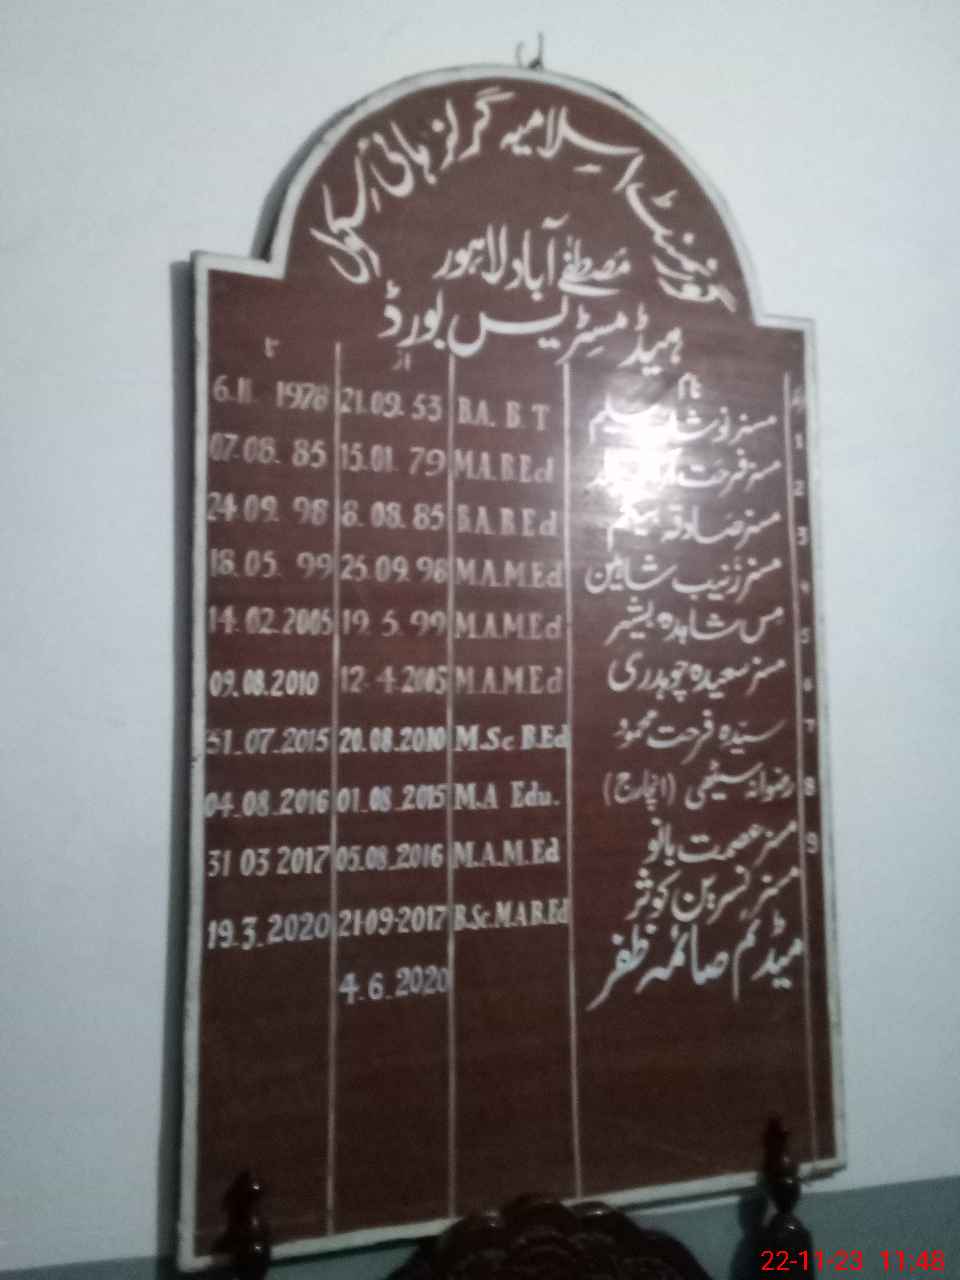 گورنمنٹ اسلامیہ گرلز ہائی سکول
مصطفےٰ آباد لاہور
ہیڈ مسٹریس بورڈ
نام از تا
1 مسز B.A. B.T 21.09.53 6.11.1978
2 مسز فرحت M.A.B.Ed 15.01.79 07.08.85
3 مسز صادقہ بیگم B.A.B.Ed 8.08.85 24.09.98
4 مسز زینب شاہین M.A.M.Ed 25.09.98 18.05.99
5 مس شاہدہ بشیر M.A.M.Ed 19.5.99 14.02.2005
6 مسز سعیدہ چوہدری M.A.M.Ed 12-4-2005 09.08.2010
7 سیدہ فرحت محمود M.Sc B.Ed 20.08.2010 31.07.2015
8 رضوانہ سیٹھی (انچارج) M.A Edu. 01.08.2015 04.08.2016
9 مسز عصمت بانو M.A.M.Ed 05.08.2016 31 03 2017
مسز نسرین کوثر B.Sc.M.A B.Ed 21-09-2017 19.3.2020
میڈیم صائمہ ظفر 4.6.2020
22-11-23 11:48